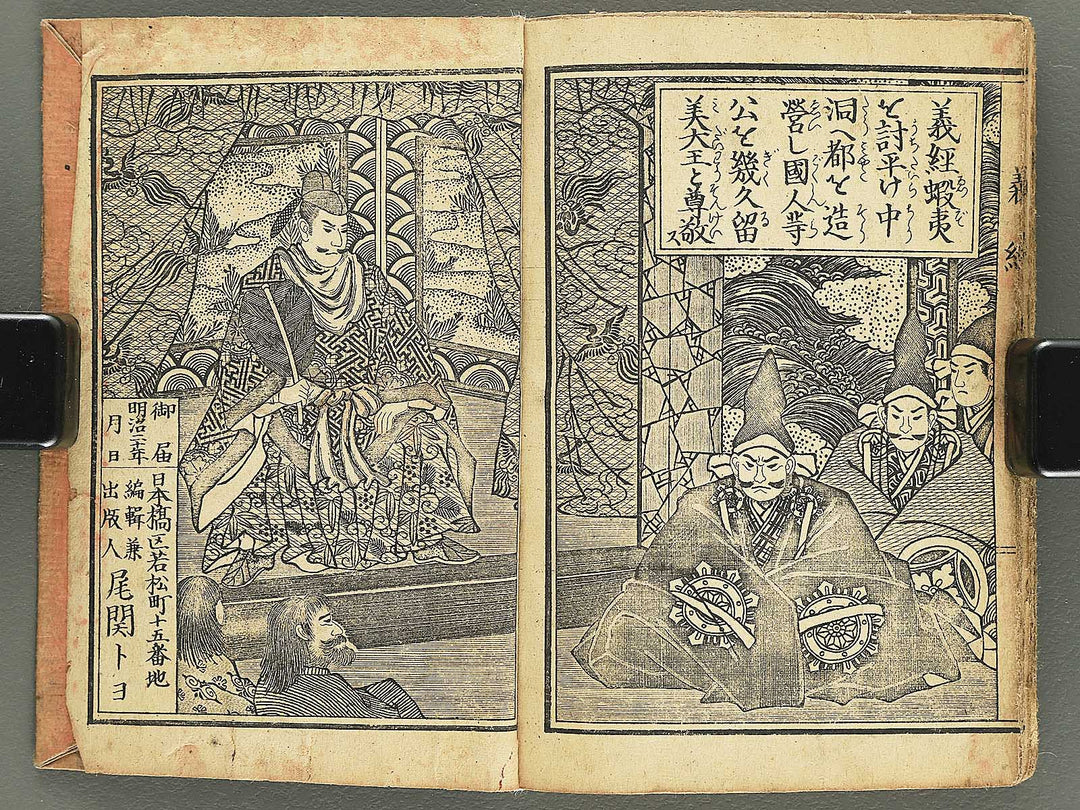 義經蝦夷
を討平け中
洞へ都を造
營し國人等
公を幾久留
美大王と尊敬
ス
義經
御届
明治二年
月日
日本橋区若松町十五番地
編輯兼
出版人
尾関トヨ